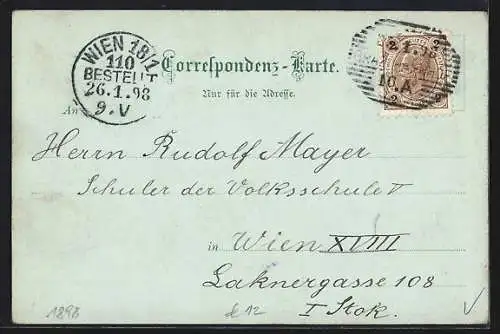 WIEN 18/1
110
BESTELLT
26.1.98
9.V
Correspondenz-Karte.
Nur für die Adresse.
An
2
10.A
2 2
Herrn Rudolf Mayer
Schüler der Volksschule V
in Wien XVIII
Laknergasse 108
I Stok.
1898